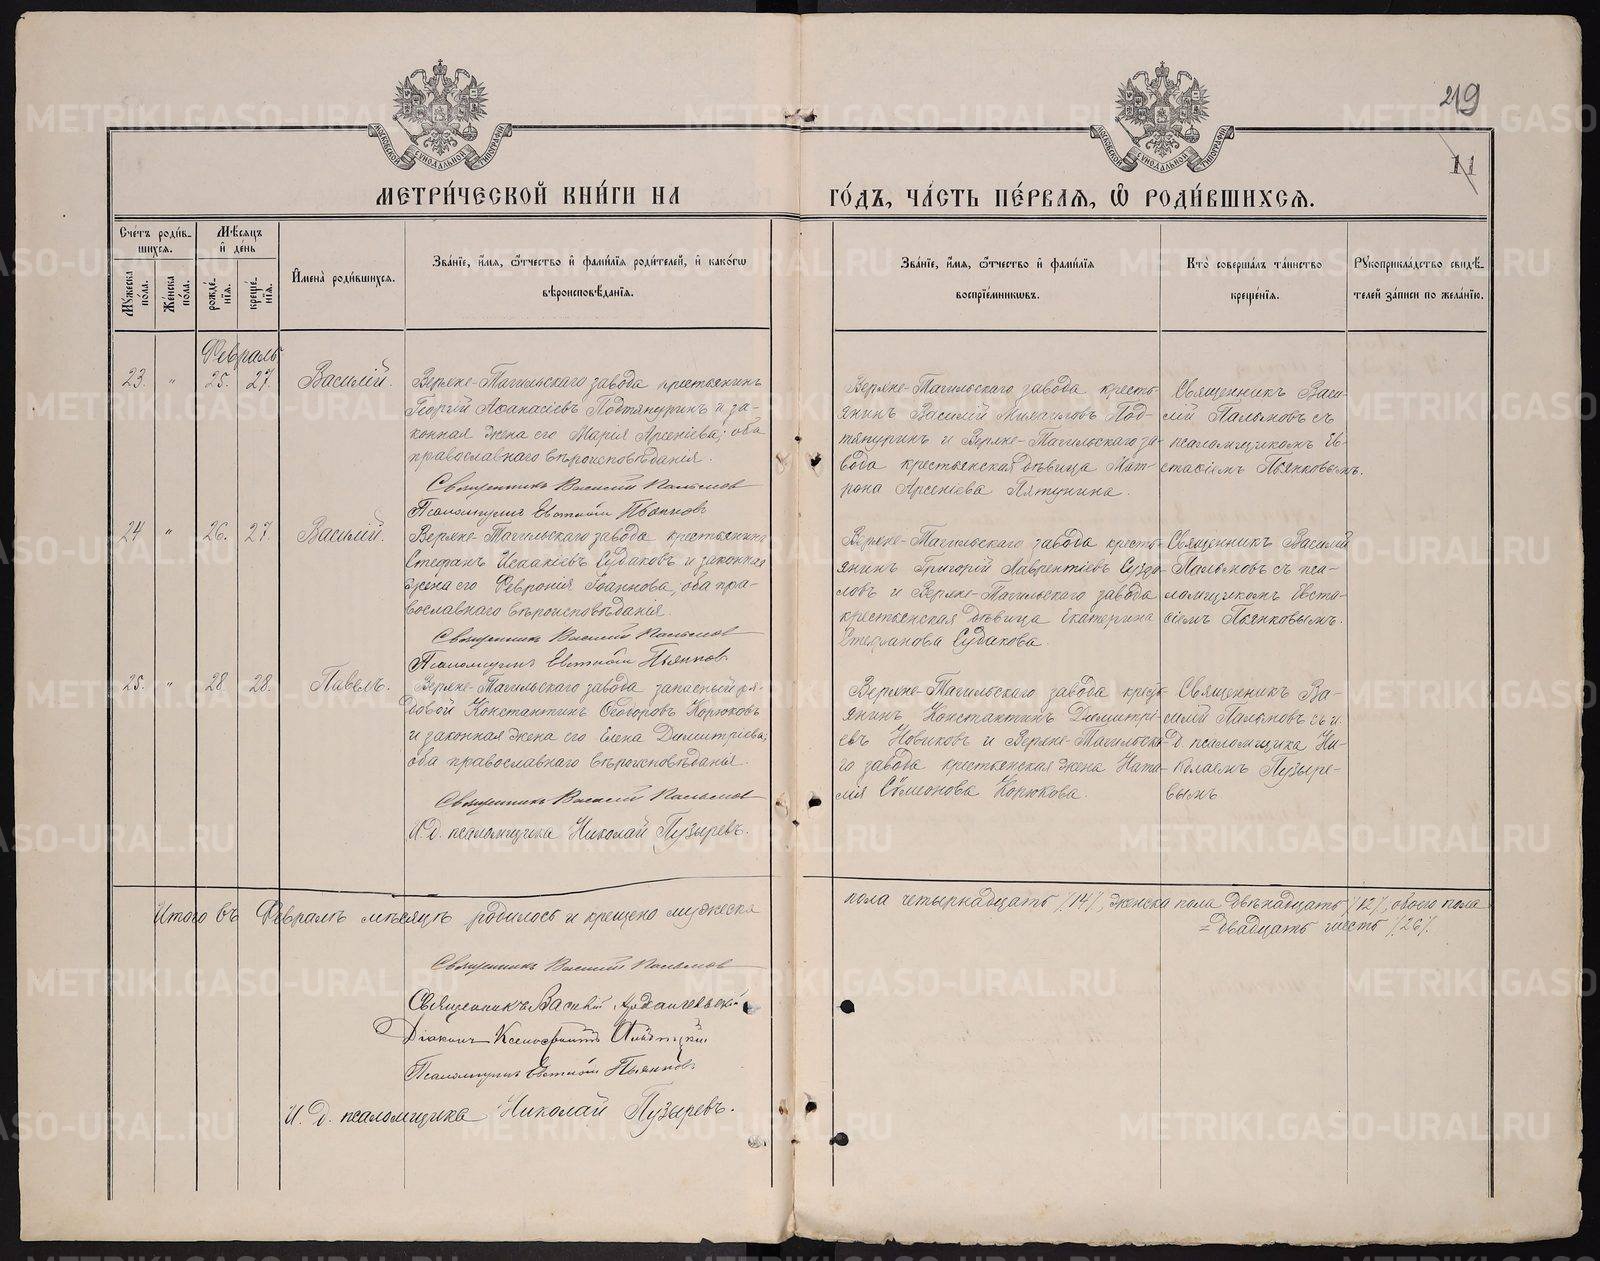 219
11
МОСКОВСКОЙ СѴНОДАЛЬНОЙ ТИПОГРАФІИ
МОСКОВСКОЙ СѴНОДАЛЬНОЙ ТИПОГРАФІИ
МЕТРИ́ЧЕСКОЙ КНИ́ГИ НА ГО́ДЪ, ЧА́СТЬ ПЕ́РВАѦ, Ѡ РОДИ́ВШИХСѦ.
Сче́тъ роди́в-
шихсѧ.
Мѣ́сѧцъ
и҆ де́нь
Мꙋ́жеска по́ла.
Же́нска по́ла.
рожде́нїѧ.
креще́нїѧ.
И҆мена̀ роди́вшихсѧ.
Зва́нїе, и҆́мѧ, ѻ҆́тчество и҆ фами́лїѧ роди́телей, и҆ како́гѡ
вѣроисповѣ́данїѧ.
Зва́нїе, и҆́мѧ, ѻ҆́тчество и҆ фами́лїѧ
воспрїе́мникѡвъ.
Кто̀ соверша́лъ та́инство
креще́нїѧ.
Рꙋкоприкла́дство свидѣ́-
телей за́писи по жела́нїю.
Февраль
23. " 25. 27. Василій.
Верхне-Тагильскаго завода крестьянинъ
Георгій Аѳанасіевъ Подтянуринъ и за-
конная жена его Марія Арсеніева; оба
православнаго вѣроисповѣданія.
Священникъ Василій Пальмовъ
Псаломщикъ Евстафій Пьянковъ
Верхне-Тагильскаго завода кресть-
янинъ Василій Михаиловъ Под-
тянуринъ и Верхне-Тагильскаго за-
вода крестьянская дѣвица Мат-
рона Арсеніева Пятунина.
Священникъ Васи-
лій Пальмовъ съ
псаломщикомъ Ев-
стафіемъ Пьянковымъ.
24 " 26. 27. Василій.
Верхне-Тагильскаго завода крестьянинъ
Стефанъ Исаакіевъ Судаковъ и законная
жена его Февронія Іоаннова, оба пра-
вославнаго вѣроисповѣданія.
Священникъ Василій Пальмовъ
Псаломщикъ Евстафій Пьянковъ
Верхне-Тагильскаго завода кресть-
янинъ Григорій Лаврентіевъ
ловъ и Верхне-Тагильскаго завода
крестьянская дѣвица Екатерина
Стефанова Судакова.
Священникъ Василій
Пальмовъ съ пса-
ломщикомъ Евста-
фіемъ Пьянковымъ.
25. " 28 28. Павелъ.
Верхне-Тагильскаго завода запасный ря-
довой Константинъ Ѳеодоровъ Корюковъ
и законная жена его Елена Димитріева;
оба православнаго вѣроисповѣданія.
Священникъ Василій Пальмовъ
И. д. псаломщика Николай Пузыревъ.
Верхне-Тагильскаго завода крест-
янинъ Константинъ Димитрі-
евъ Новиковъ и Верхне-Тагильска-
го завода крестьянская жена Ната-
лія Симеонова Корюкова.
Священникъ Ва-
силій Пальмовъ съ и.
д. псаломщика Ни-
колаемъ Пузыре-
вымъ
Итого въ Февралѣ мѣсяцѣ родилось и крещено мужеска
пола четырнадцать /14/, женска пола двѣнадцать /12/, обоего пола
= двадцать шесть /26/.
Священникъ Василій Пальмовъ
Священникъ Василій Архангельскій
Діаконъ Ксенофонтъ
Псаломщикъ Евстафій Пьянковъ
И. д. псаломщика Николай Пузыревъ.
METRIKI.GASO-URAL.RU